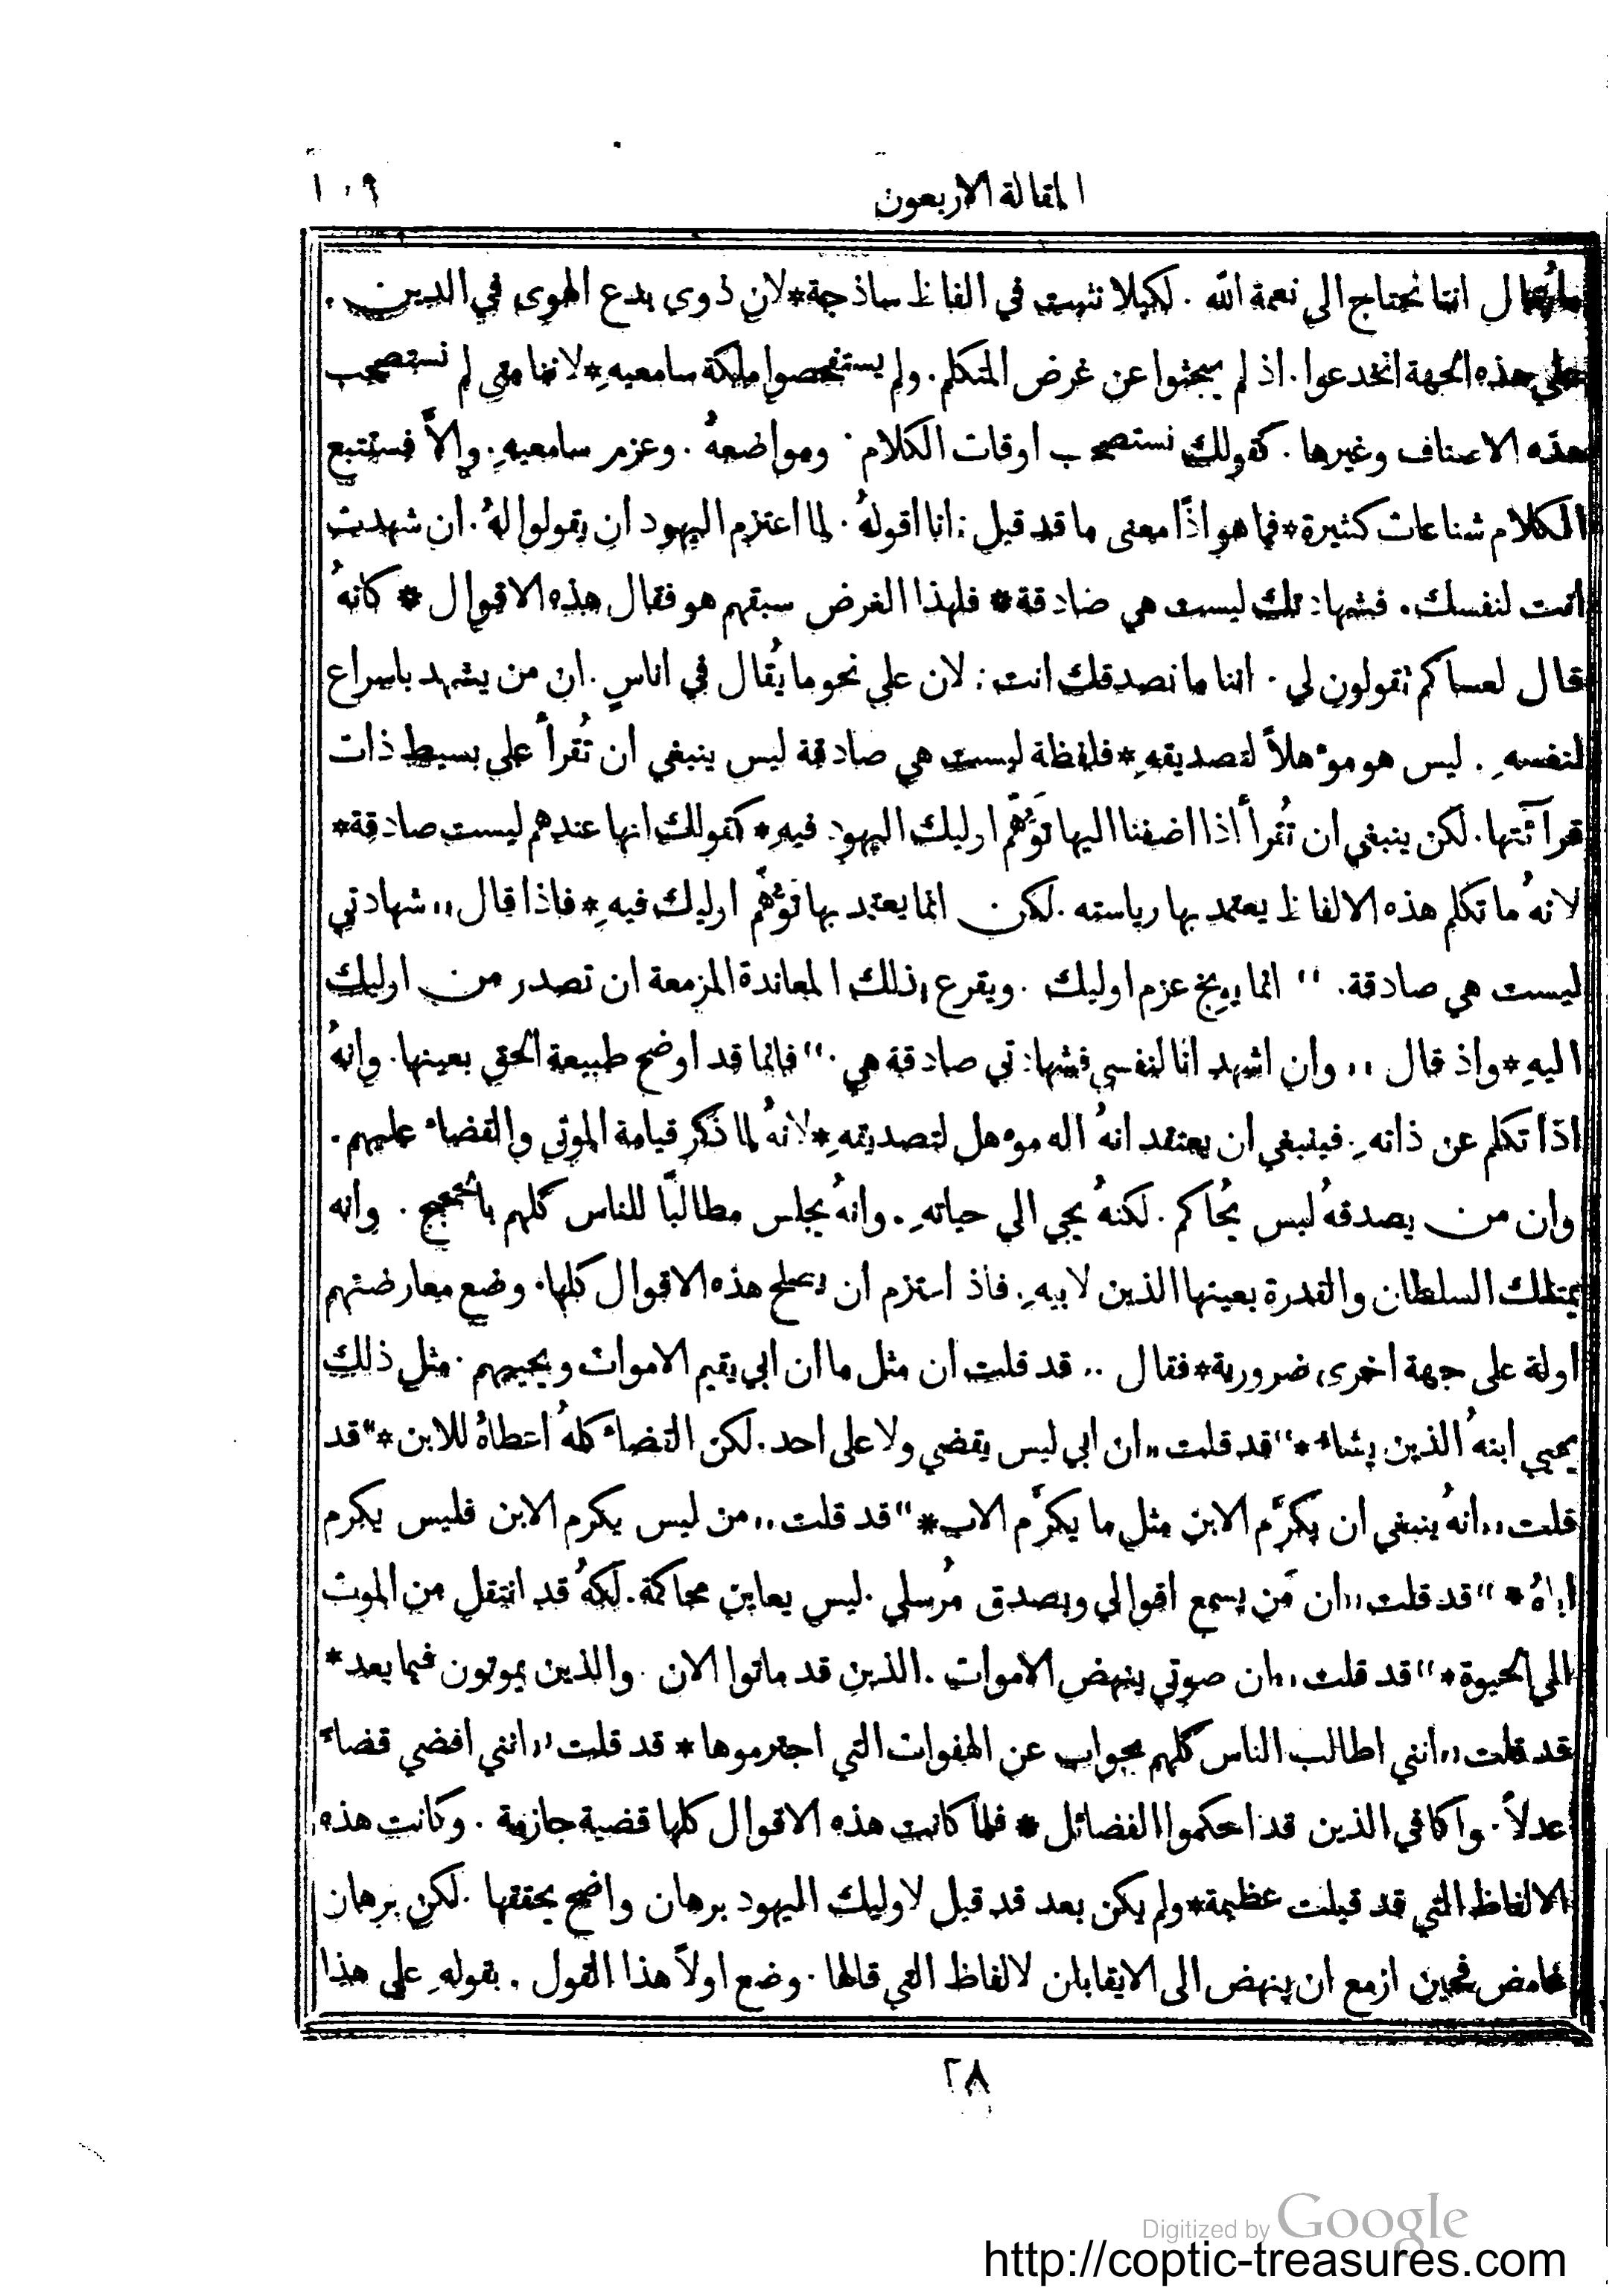 المقالة الاربعون
١٠٩
ما يُقال اننا نحتاج الى نعمة الله . لكيلا نثبت في الفاظ ساذجة * لان ذوى بدع الهوى في الدين .
على هذه الجهة انخدعوا . اذ لم يبحثوا عن غرض المتكلم . ولم يستفحصوا ملكة سامعيهِ * لاننا متى لم نستصحب
هذه الاصناف وغيرها . كقولك نستصحب اوقات الكلام . ومواضعهُ . وعزم سامعيهِ . والاَّ فستتبع
الكلام شناعات كثيرة * فما هو اذًا معنى ما قد قيل : انا اقولهُ . لما اعتزم اليهود ان يقولوا لهُ . ان شهدت
انت لنفسك . فشهادتك ليست هي صادقة * فلهذا الغرض سبقهم هو فقال هذه الاقوال * كانهُ
قال لعساكم تقولون لي . اننا ما نصدقك انت : لان على نحو ما يُقال في اناسٍ . ان من يشهد باسراع
لنفسهِ . ليس هو موٴهلاً لتصديقهِ * فلفظة ليست هي صادقة ليس ينبغي ان تُقرأ على بسيط ذات
قرآئتها . لكن ينبغي ان تُقرأ اذا اضفنا اليها توَهُّم اوليك اليهود فيهِ * كقولك انها عندهم ليست صادقة *
لانهُ ما تكلم هذه الالفاظ يعتمد بها رياسته . لكن انما يعتمد بها توَهُّم اوليك فيهِ * فاذا قال ,, شهادتي
ليست هي صادقة . '' انما يوبخ عزم اوليك . ويقرع بذلك المعاندة المزمعة ان تصدر من اوليك
اليهِ * واذ قال ,, وان اشهد انا لنفسي فشهادتي صادقة هي . '' فانما قد اوضح طبيعة الحق بعينها . وانهُ
اذا تكلم عن ذاتهِ . فينبغي ان يعتقد انهُ اله موٴهل لتصديقهِ * لانهُ لما ذكر قيامة الموتى والقضاء عليهم .
وان من يصدقهُ ليس يُحاكم . لكنهُ يجي الى حياتهِ . وانهُ يجلس مطالبًا للناس كلهم بالحجج . وانه
يمتلك السلطان والقدرة بعينها الذين لابيهِ . فاذ استزم ان يصلح هذه الاقوال كلها . وضع معارضتهم
اولة على جهة اخرى ضرورية * فقال ,, قد قلت ان مثل ما ان ابي يقيم الاموات ويحييهم . مثل ذلك
يحيي ابنهُ الذين يشاء * '' قد قلت ,, ان ابي ليس يقضي ولا على احد . لكن القضاء كلهُ اعطاهُ للابن * '' قد
قلت ,, انهُ ينبغي ان يكرَّم الابن مثل ما يكرَّم الاب * '' قد قلت ,, من ليس يكرم الابن فليس يكرم
اباهُ * '' قد قلت ,, ان مَن يسمع اقوالي ويصدق مُرسلي . ليس يعاين محاكمة . لكنهُ قد انتقل من الموت
الى الحيوة * '' قد قلت ,, ان صوتي ينهض الاموات . الذين قد ماتوا الان . والذين يموتون فيما يعد *
قد قلت ,, انني اطالب الناس كلهم بجواب عن الهفوات التي اجترموها * قد قلت ,, انني اقضي قضاءً
عدلاً . واكافي الذين قد احكموا الفضائل * فلما كانت هذه الاقوال كلها قضية جازمة . وكانت هذه
الالفاظ التي قد قيلت عظيمة * ولم يكن بعد قد قيل لاوليك اليهود برهان واضح يحققها . لكن برهان
غامض فحين ازمع ان ينهض الى الايقان بان لالفاظ التي قالها . وضع اولاً هذا القول . بقولهِ على هذا
٢٨
Digitized by Google
http://coptic-treasures.com